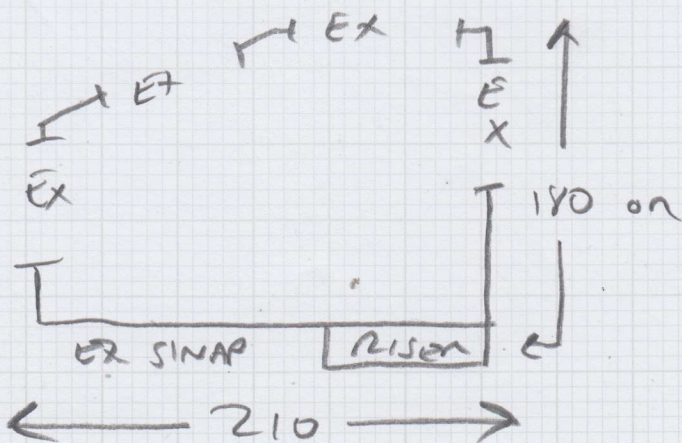 EX
EX
EX
EX
180 on
EX SINAP
RISER
210